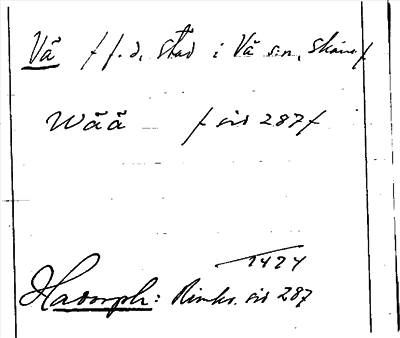 Vä / f.d. stad i Vä sn, Skåne /
Wää / sid 287 /
1424
Hadorph: Rimkr. sid 287